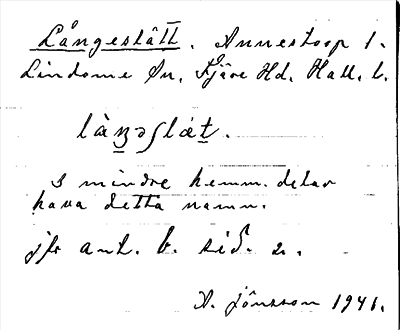 Långeslätt. Annestorp 1.
Lindome Sn. Fjäre Hd. Hall. l.
làŋəslæt.
3 mindre hemm. delar
hava detta namn.
jfr ant. b. sid. 2.
A. Jönsson 1941.